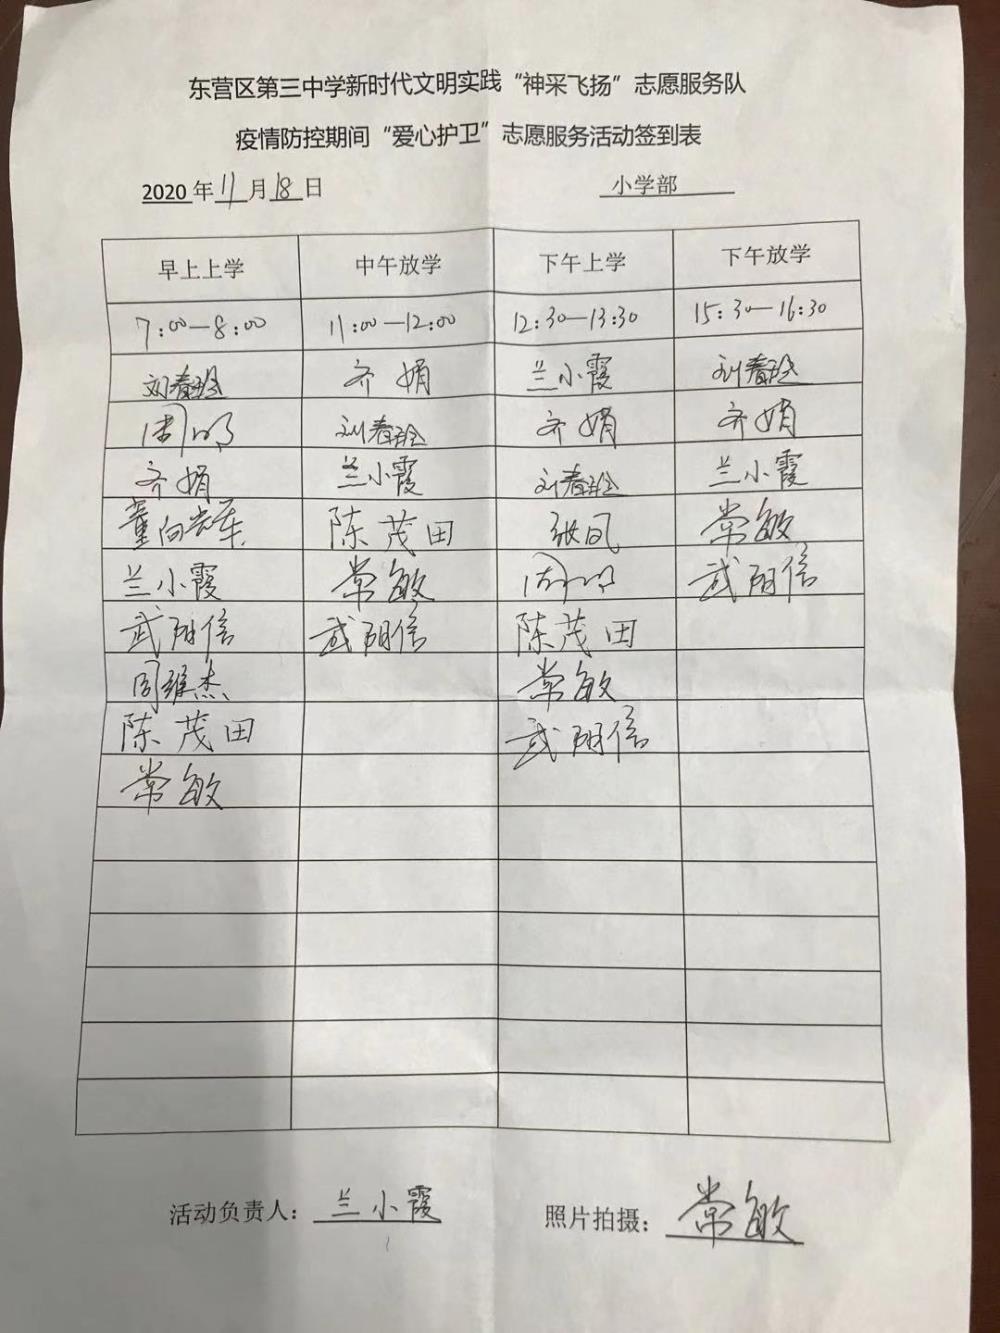 东营区第三中学新时代文明实践“神采飞扬”志愿服务队
疫情防控期间“爱心护卫”志愿服务活动签到表
2020年11月18日 小学部
早上上学 中午放学 下午上学 下午放学
7:00—8:00 11:00—12:00 12:30—13:30 15:30—16:30
刘春 齐娟 兰小霞 刘春
周 刘春 齐娟 齐娟
齐娟 兰小霞 刘春 兰小霞
董向 陈茂田 张凤 常敏
兰小霞 常敏 周 武阳信
武阳信 武阳信 陈茂田
周维杰 常敏
陈茂田 武阳信
常敏
活动负责人：兰小霞 照片拍摄：常敏